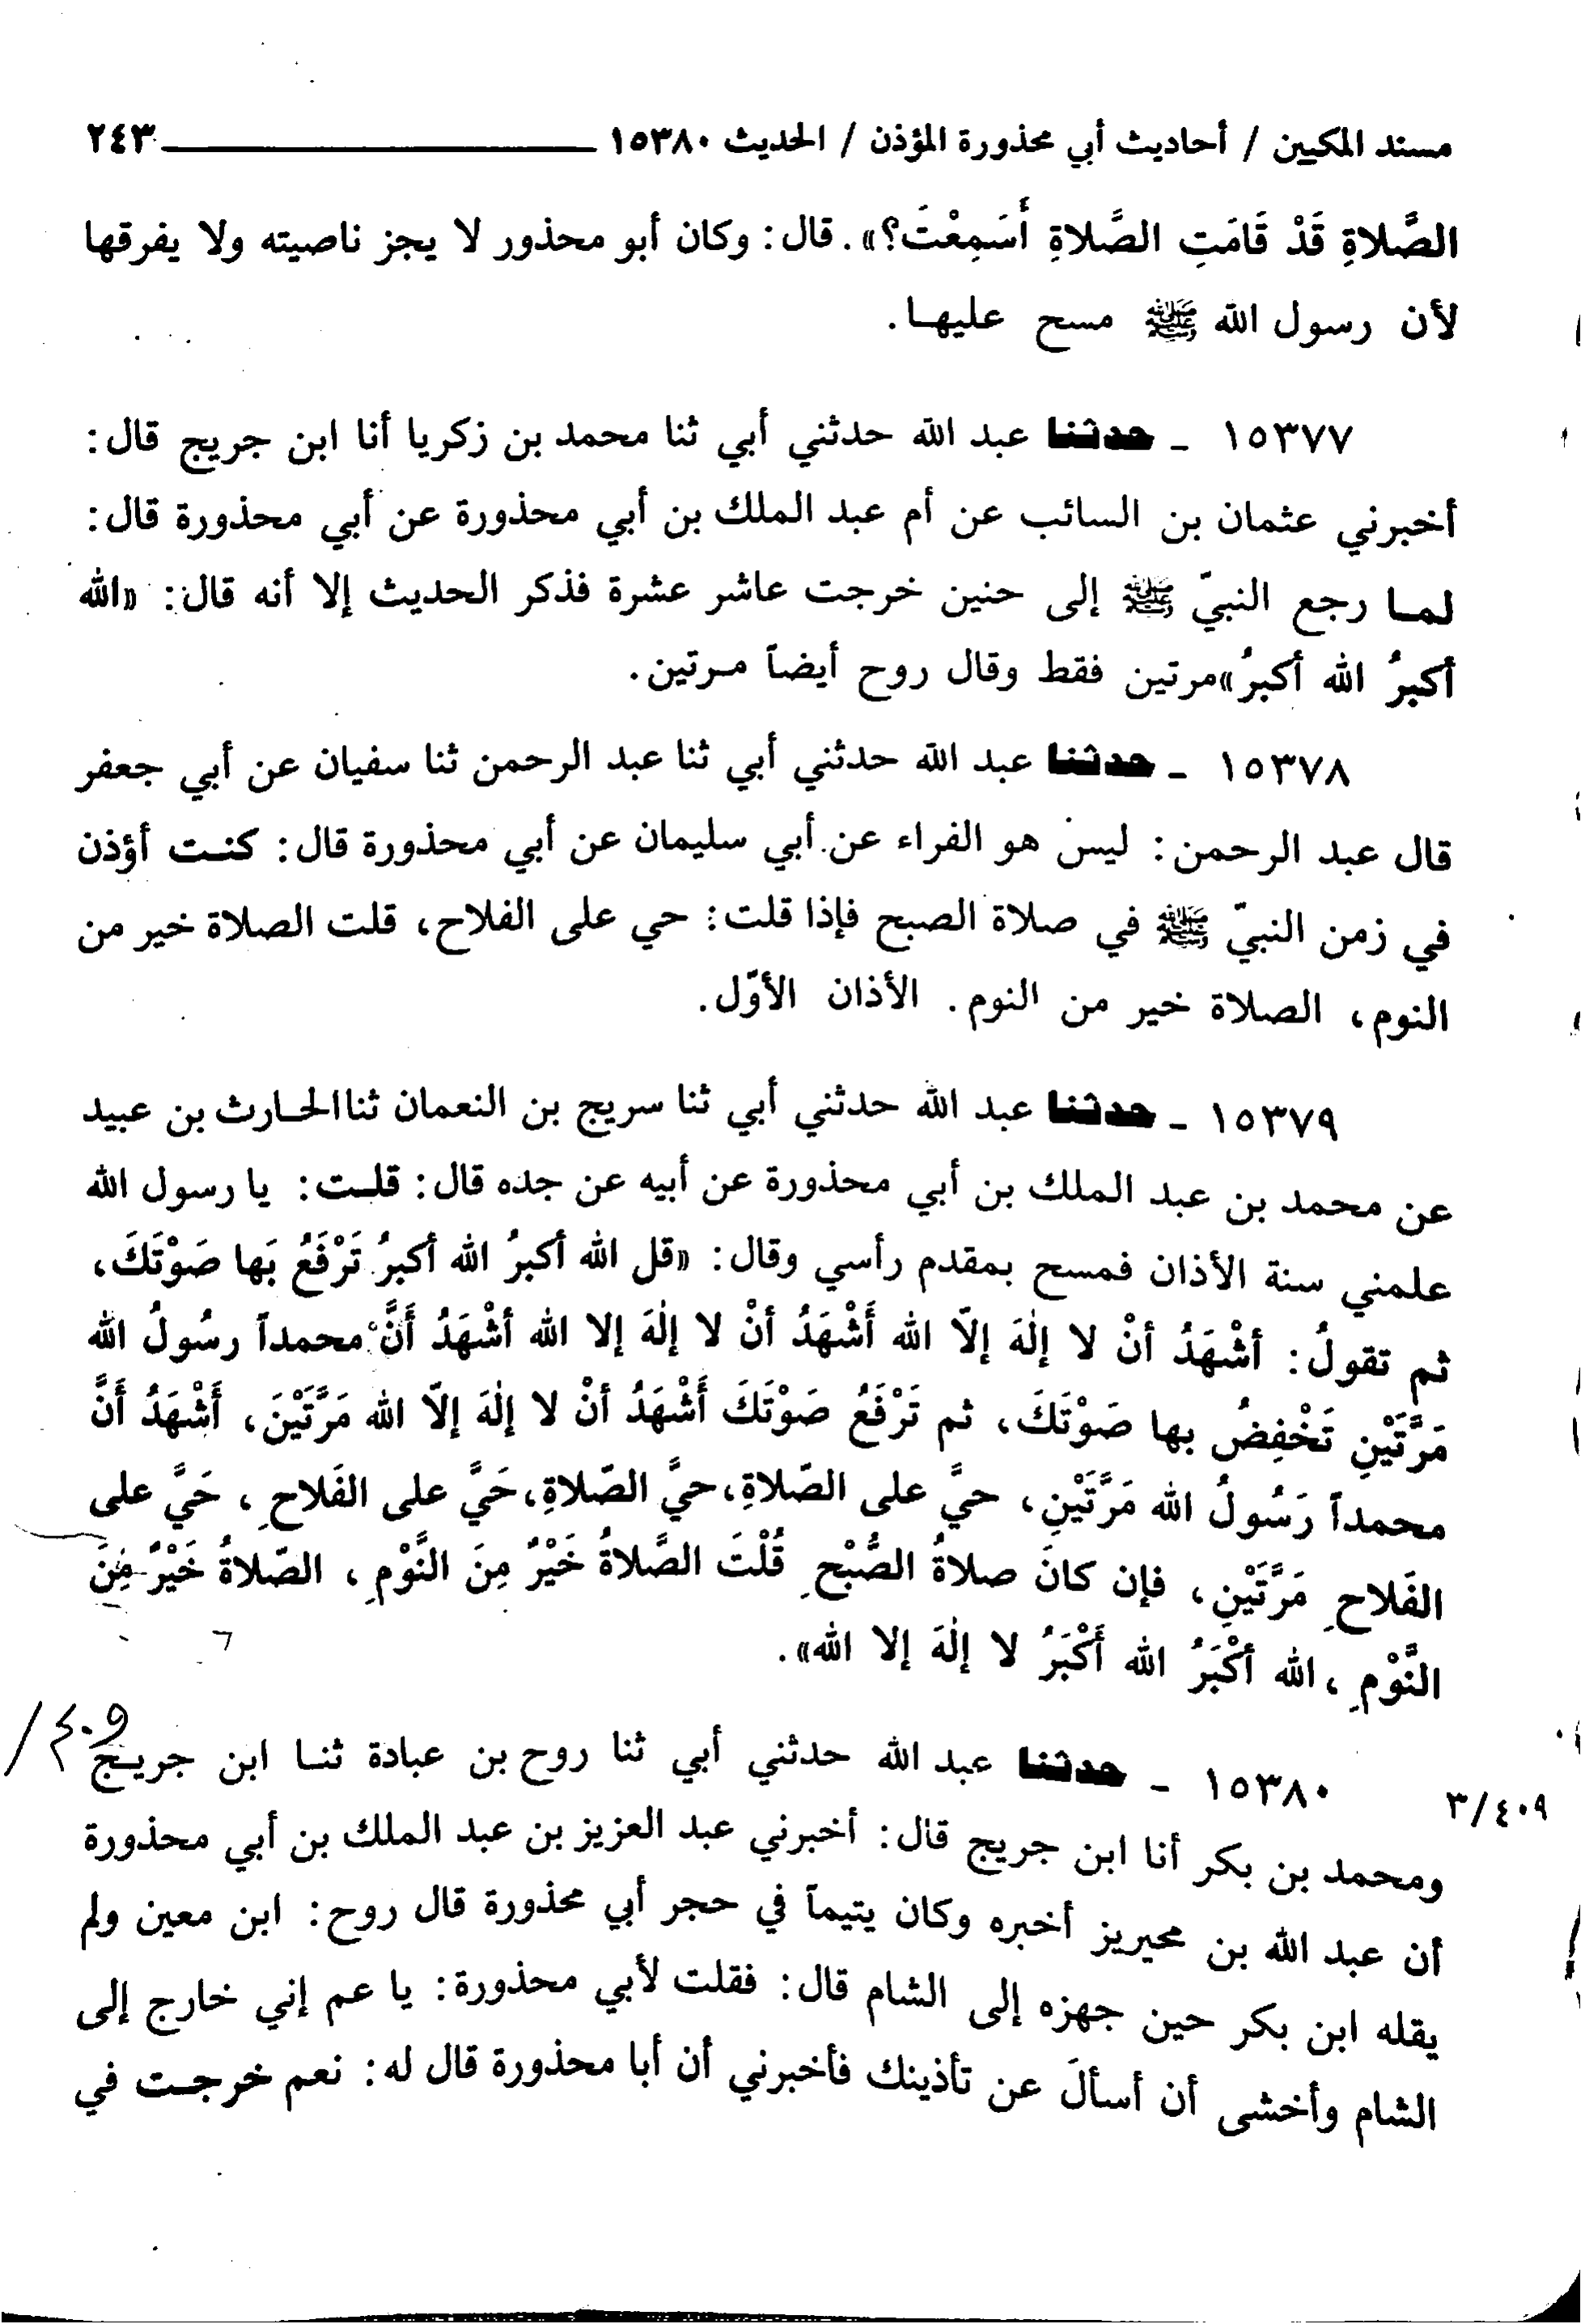 مسند المكيين / أحاديث أبي محذورة المؤذن / الحديث ١٥٣٨٠ ٢٤٣
الصَّلاةِ قَدْ قَامَتِ الصَّلاةِ أَسَمِعْتَ؟». قال: وكان أبو محذور لا يجز ناصيته ولا يفرقها
لأن رسول الله ﷺ مسح عليها.
١٥٣٧٧ - حدثنا عبد الله حدثني أبي ثنا محمد بن زكريا أنا ابن جريج قال:
أخبرني عثمان بن السائب عن أم عبد الملك بن أبي محذورة عن أبي محذورة قال:
لما رجع النبيّ ﷺ إلى حنين خرجت عاشر عشرة فذكر الحديث إلا أنه قال: «الله
أكبرُ الله أكبرُ» مرتين فقط وقال روح أيضاً مرتين.
١٥٣٧٨ - حدثنا عبد الله حدثني أبي ثنا عبد الرحمن ثنا سفيان عن أبي جعفر
قال عبد الرحمن: ليس هو الفراء عن أبي سليمان عن أبي محذورة قال: كنت أؤذن
في زمن النبيّ ﷺ في صلاة الصبح فإذا قلت: حي على الفلاح، قلت الصلاة خير من
النوم، الصلاة خير من النوم. الأذان الأوّل.
١٥٣٧٩ - حدثنا عبد الله حدثني أبي ثنا سريج بن النعمان ثنا الحارث بن عبيد
عن محمد بن عبد الملك بن أبي محذورة عن أبيه عن جده قال: قلت: يا رسول الله
علمني سنة الأذان فمسح بمقدم رأسي وقال: «قل الله أكبرُ الله أكبرُ تَرْفَعُ بَها صَوْتَكَ،
ثم تقولُ: أشْهَدُ أنْ لا إلٰهَ إلاّ الله أَشْهَدُ أنْ لا إلٰهَ إلا الله أشْهَدُ أَنَّ محمداً رسُولُ الله
مَرَّتَيْنِ تَخْفِضُ بها صَوْتَكَ، ثم تَرْفَعُ صَوْتَكَ أَشْهَدُ أنْ لا إلٰهَ إلاّ الله مَرَّتَيْنَ، أَشْهَدُ أَنَّ
محمداً رَسُولُ الله مَرَّتَيْنِ، حيَّ على الصّلاةِ، حيَّ الصّلاةِ، حَيَّ على الفَلاحِ، حَيَّ على
الفَلاحِ مَرَّتَيْنِ، فإن كانَ صلاةُ الصُّبْحِ قُلْتَ الصَّلاةُ خَيْرٌ مِنَ النَّوْمِ، الصّلاةُ خَيْرٌ مِنَ
النَّوْمِ، الله أكْبَرُ الله أَكْبَرُ لا إلٰهَ إلا الله».
٤٠٩/
١٥٣٨٠ - حدثنا عبد الله حدثني أبي ثنا روح بن عبادة ثنا ابن جريج
٣/٤٠٩
ومحمد بن بكر أنا ابن جريج قال: أخبرني عبد العزيز بن عبد الملك بن أبي محذورة
أن عبد الله بن محيريز أخبره وكان يتيماً في حجر أبي محذورة قال روح: ابن معين ولم
يقله ابن بكر حين جهزه إلى الشام قال: فقلت لأبي محذورة: يا عم إني خارج إلى
الشام وأخشى أن أسألَ عن تأذينك فأخبرني أن أبا محذورة قال له: نعم خرجت في